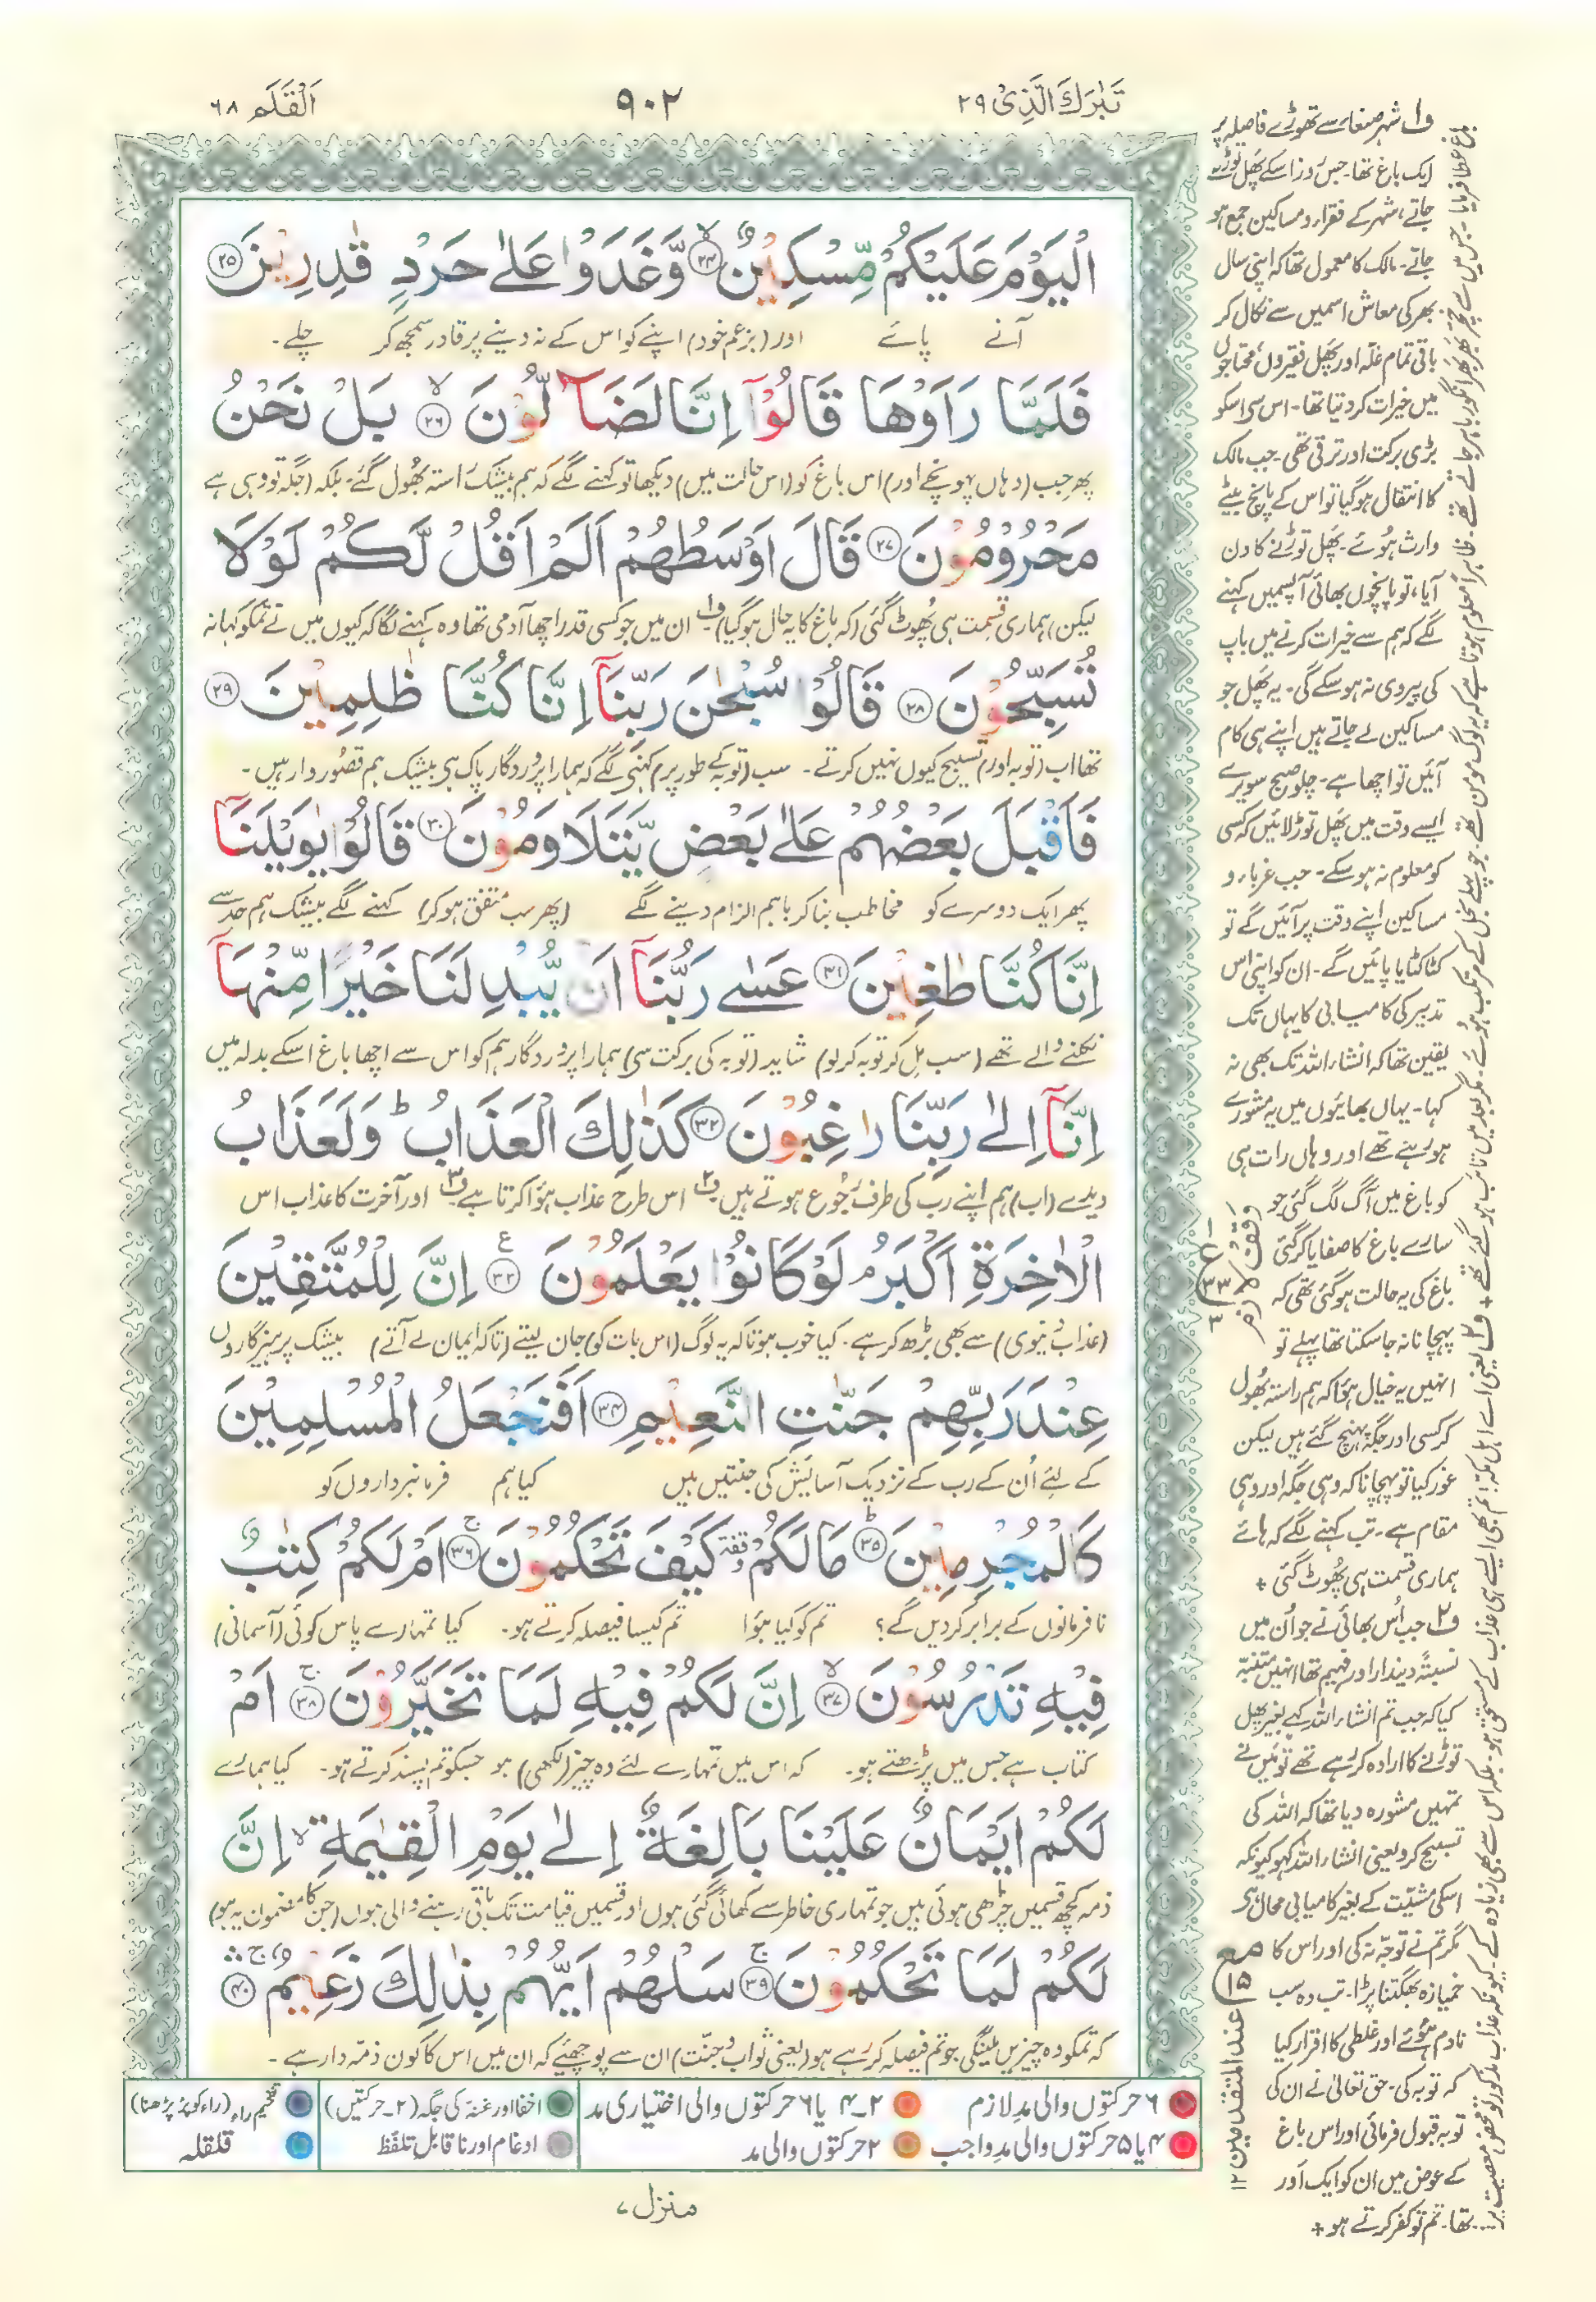 تَبٰرَكَ الَّذِیْ ۲۹
۹۰۲
اَلْقَلَم ۶۸
الْيَوْمَ عَلَيْكُمْ مِّسْكِيْنٌ ﴿۲۴﴾ وَّغَدَوْا عَلٰى حَرْدٍ قٰدِرِيْنَ ﴿۲۵﴾
آنے پائے اور (بزعم خود) اپنے کو اس کے نہ دینے پر قادر سمجھ کر چلے۔
فَلَمَّا رَاَوْهَا قَالُوْٓا اِنَّا لَضَآلُّوْنَ ﴿۲۶﴾ بَلْ نَحْنُ
پھر جب (وہاں پہونچے اور) اس باغ کو (اس حالت میں) دیکھا تو کہنے لگے کہ ہم بیشک راستہ بھُول گئے۔ بلکہ (جگہ تو وہی ہے
مَحْرُوْمُوْنَ ﴿۲۷﴾ قَالَ اَوْسَطُهُمْ اَلَمْ اَقُلْ لَّكُمْ لَوْلَا
لیکن) ہماری قسمت ہی پھُوٹ گئی (کہ باغ کا یہ حال ہوگیا) ف۱ ان میں جو کسی قدر اچھا آدمی تھا وہ کہنے لگا کہ کیوں میں نے تمکو کہا نہ
تُسَبِّحُوْنَ ﴿۲۸﴾ قَالُوْا سُبْحٰنَ رَبِّنَآ اِنَّا كُنَّا ظٰلِمِيْنَ ﴿۲۹﴾
تھا اب (توبہ اور) تسبیح کیوں نہیں کرتے۔ سب (توبہ کے طور پر) کہنی لگے کہ ہمارا پروردگار پاک ہی بیشک ہم قصُور وار ہیں۔
فَاَقْبَلَ بَعْضُهُمْ عَلٰى بَعْضٍ يَّتَلَاوَمُوْنَ ﴿۳۰﴾ قَالُوْا يٰوَيْلَنَآ
پھر ایک دوسرے کو مخاطب بنا کر باہم الزام دینے لگے (پھر سب متفق ہوکر) کہنے لگے بیشک ہم حد سے
اِنَّا كُنَّا طٰغِيْنَ ﴿۳۱﴾ عَسٰى رَبُّنَآ اَنْ يُّبْدِلَنَا خَيْرًا مِّنْهَآ
نکلنے والے تھے (سب مِل کر توبہ کر لو) شاید (توبہ کی برکت سی) ہمارا پروردگار ہم کو اس سے اچھا باغ اسکے بدلہ میں
اِنَّآ اِلٰى رَبِّنَا رٰغِبُوْنَ ﴿۳۲﴾ كَذٰلِكَ الْعَذَابُ ؕ وَلَعَذَابُ
دیدے (اب) ہم اپنے رب کی طرف رُجُوع ہوتے ہیں ف۲ اس طرح عذاب ہؤا کرتا ہے ف۳ اور آخرت کا عذاب اس
الْاٰخِرَةِ اَكْبَرُ ۘ لَوْ كَانُوْا يَعْلَمُوْنَ ﴿۳۳﴾ اِنَّ لِلْمُتَّقِيْنَ
(عذاب دنیوی) سے بھی بڑھ کر ہے۔ کیا خوب ہوتا کہ یہ لوگ (اس بات کو) جان لیتے (تاکہ ایمان لے آتے) بیشک پرہیزگاروں
عِنْدَ رَبِّهِمْ جَنّٰتِ النَّعِيْمِ ﴿۳۴﴾ اَفَنَجْعَلُ الْمُسْلِمِيْنَ
کے لئے اُن کے رب کے نزدیک آسائش کی جنتیں ہیں کیا ہم فرمانبرداروں کو
كَالْمُجْرِمِيْنَ ﴿۳۵﴾ مَا لَكُمْ وقفة كَيْفَ تَحْكُمُوْنَ ﴿۳۶﴾ اَمْ لَكُمْ كِتٰبٌ
نافرمانوں کے برابر کردیں گے؟ تم کو کیا ہؤا تم کیسا فیصلہ کرتے ہو۔ کیا تمہارے پاس کوئی (آسمانی)
فِيْهِ تَدْرُسُوْنَ ﴿۳۷﴾ اِنَّ لَكُمْ فِيْهِ لَمَا تَخَيَّرُوْنَ ﴿۳۸﴾ اَمْ
کتاب ہے جس میں پڑھتے ہو۔ کہ اس میں تمہارے لئے وہ چیز (لکھی) ہو جسکو تم پسند کرتے ہو۔ کیا ہمارے
لَكُمْ اَيْمَانٌ عَلَيْنَا بَالِغَةٌ اِلٰى يَوْمِ الْقِيٰمَةِ ۙ اِنَّ
ذمہ کچھ قسمیں چڑھی ہوئی ہیں جو تمہاری خاطر سے کھائی گئی ہوں اور قسمیں قیامت تک باقی رہنے والی ہوں (جن کا مضمون یہ ہو)
لَكُمْ لَمَا تَحْكُمُوْنَ ﴿۳۹﴾ سَلْهُمْ اَيُّهُمْ بِذٰلِكَ زَعِيْمٌ ﴿۴۰﴾
کہ تمکو وہ چیزیں ملینگی جو تم فیصلہ کر رہے ہو (یعنی ثواب و جنّت) ان سے پوچھئے کہ ان میں اس کا کون ذمّہ دار ہے۔
۶ حرکتوں والی مدِ لازم
۲۔۴ یا ۶ حرکتوں والی اختیاری مد
اخفا اور غنہ کی جگہ (۲۔حرکتیں)
تفخیم راء (راء کو پُر پڑھنا)
۴ یا ۵ حرکتوں والی مدِ واجب
۲ حرکتوں والی مد
ادغام اور ناقابلِ تلفّظ
قلقلہ
منزل ۷
ف۱ شہر صنعاء سے تھوڑے فاصلہ پر
ایک باغ تھا۔ جس روز اسکے پھل توڑے
جاتے، شہر کے فقراء و مساکین جمع ہو
جاتے۔ مالک کا معمول تھا کہ اپنی سال
بھر کی معاش اسمیں سے نکال کر
باقی تمام غلّہ اور پھل فقیروں محتاجوں
میں خیرات کردیتا تھا۔ اس سی اسکو
بڑی برکت اور ترقی تھی۔ جب مالک
کا انتقال ہوگیا تو اس کے پانچ بیٹے
وارث ہُوئے۔ پھل توڑنے کا دن
آیا، تو پانچوں بھائی آپسمیں کہنے
لگے کہ ہم سے خیرات کرنے میں باپ
کی پیروی نہ ہو سکے گی۔ یہ پھل جو
مساکین لے جاتے ہیں اپنے ہی کام
آئیں تو اچھا ہے۔ چلو صبح سویرے
ایسے وقت میں پھل توڑ لائیں کہ کسی
کو معلوم نہ ہو سکے۔ جب غرباء و
مساکین اپنے وقت پر آئیں گے تو
کٹا کٹایا پائیں گے۔ ان کو اپنی اس
تدبیر کی کامیابی کا یہاں تک
یقین تھا کہ انشاء اللہ تک بھی نہ
کہا۔ یہاں بھائیوں میں یہ مشورے
ہو رہے تھے اور وہاں رات ہی
کو باغ میں آگ لگ گئی جو
سارے باغ کا صفایا کرگئی
باغ کی یہ حالت ہوگئی تھی کہ
پہچانا نہ جاسکتا تھا پہلے تو
انہیں یہ خیال ہؤا کہ ہم راستہ بھُول
کر کسی اور جگہ پہنچ گئے ہیں لیکن
غور کیا تو پہچانا کہ وہی جگہ اور وہی
مقام ہے۔ تب کہنے لگے کہ ہائے
ہماری قسمت ہی پھُوٹ گئی +
ف۲ جب اُس بھائی نے جو اُن میں
نسبتہً دیندار اور فہیم تھا انہیں متنبّہ
کیا کہ جب تم انشاء اللہ کہے بغیر پھل
توڑنے کا ارادہ کر رہے تھے تو میں نے
تمہیں مشورہ دیا تھا کہ اللہ کی
تسبیح کرو یعنی انشاء اللہ کہو کیونکہ
اسکی مشیّت کے بغیر کامیابی محال ہی
مگر تم نے توجّہ نہ کی اور اس کا
خمیازہ بھگتنا پڑا۔ تب وہ سب
نادم ہُوئے اور غلطی کا اقرار کیا
کہ توبہ کی۔ حق تعالیٰ نے ان کی
توبہ قبول فرمائی اور اس باغ
کے عوض میں ان کو ایک اور
باغ عطا فرمایا۔ جس میں سے خچّر بھر بھر انگور باہر جاتے تھے۔ ظاہراً معلوم ہوتا ہے کہ یہ لوگ مومن تھے۔ جو پہلے بخل کے مرتکب ہوئے۔ مگر بعد میں تائب ہو گئے تھے + ف۳ یعنی اے اہل مکہ! تم بھی ایسے ہی عذاب کے مستحق ہو۔ بلکہ اس سے بھی زیادہ کے۔ کیونکہ عذاب مذکور تو محض معصیت پر
تھا۔ تم تو کفر کرتے ہو +
وقف لازم
۱
ع
۳۳
۳
مع ۱۵
عند المتقدمین ۱۲